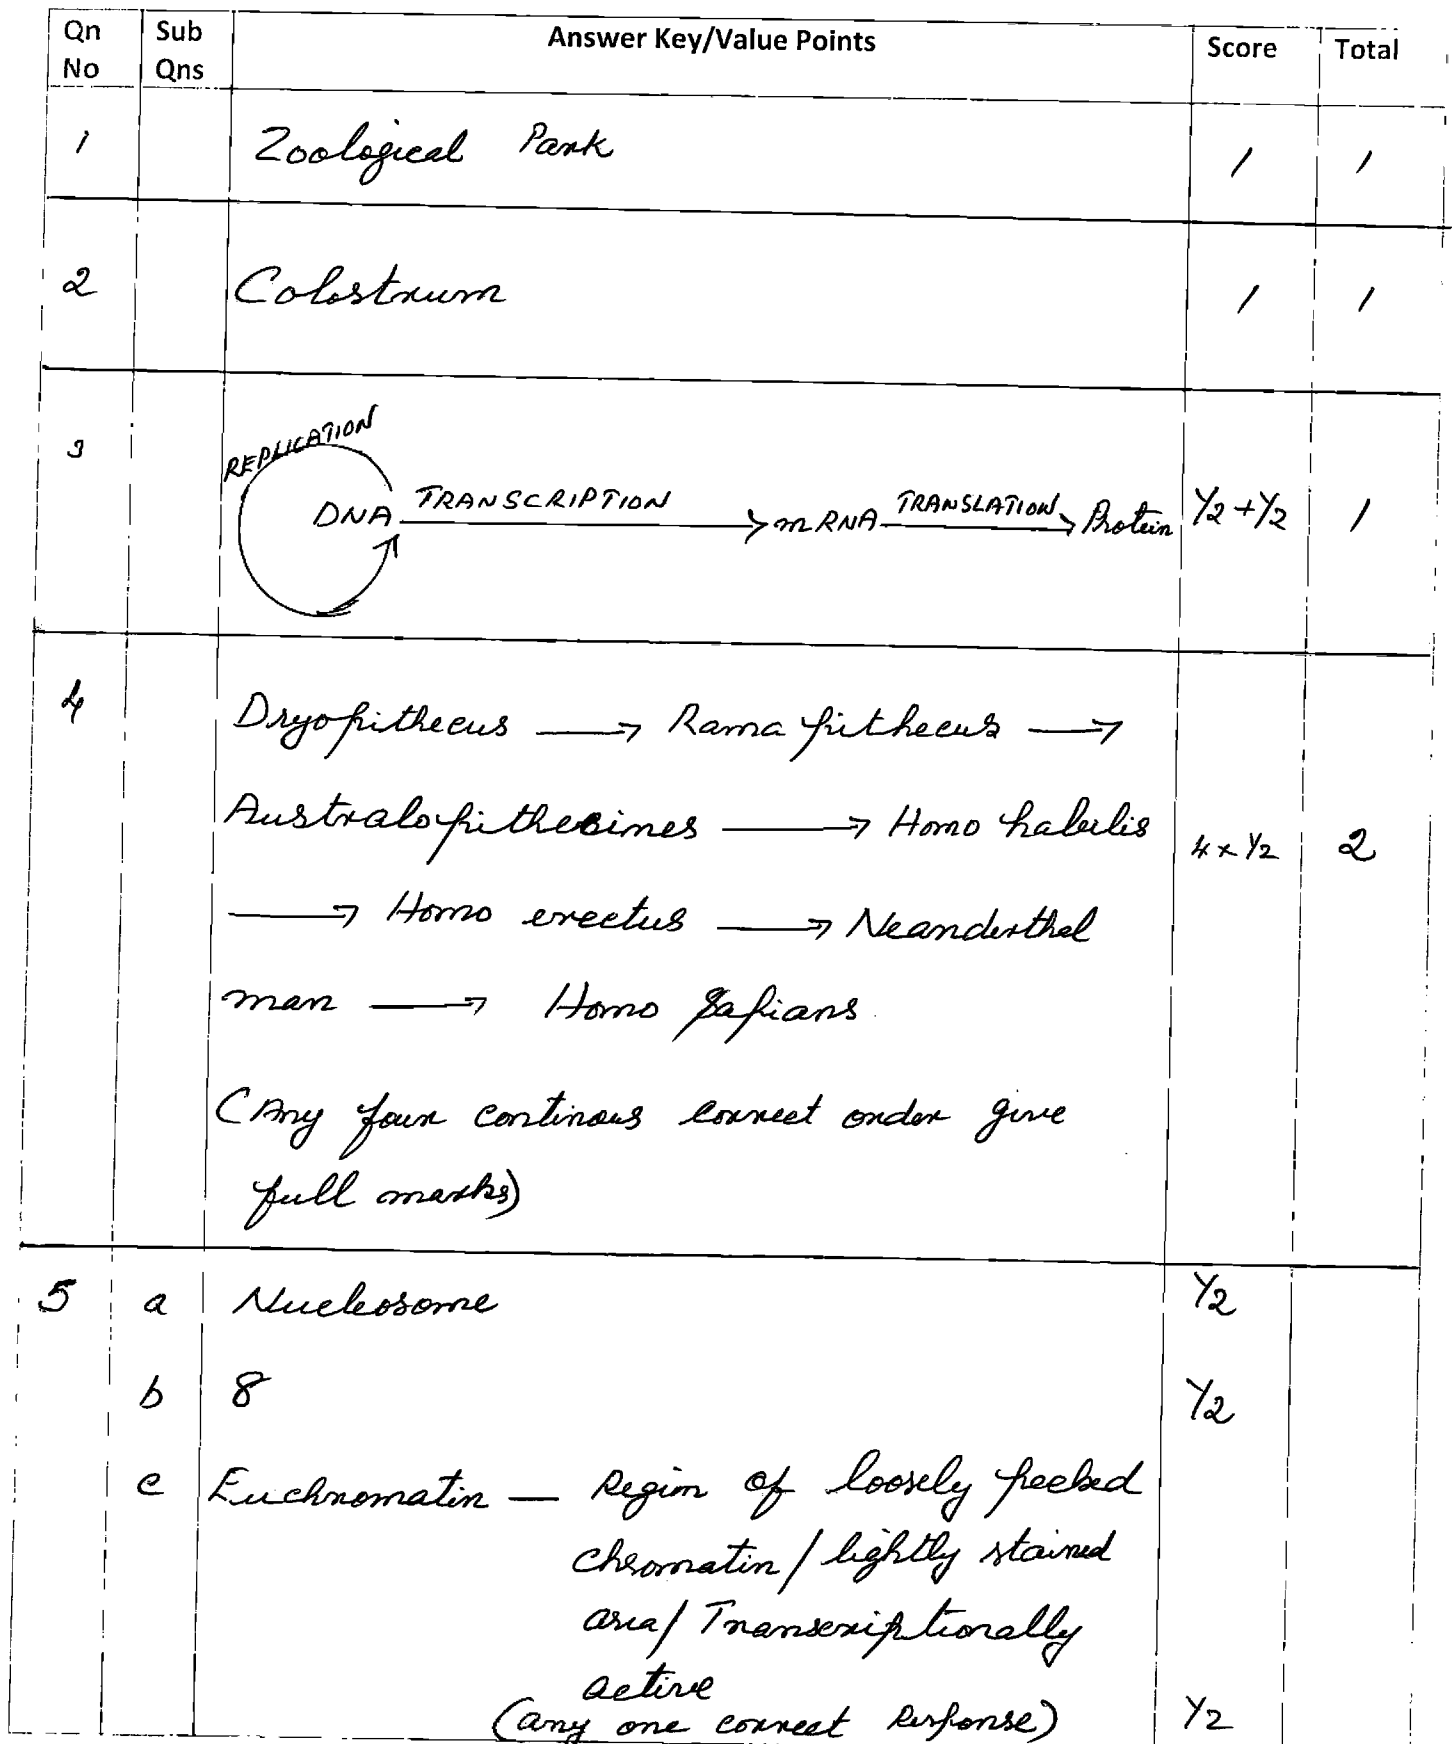 Qn No Sub Qns Answer Key/Value Points Score Total
1 Zoological Park 1 1
2 Colostrum 1 1
REPLICATION
3 DNA TRANSCRIPTION mRNA TRANSLATION Protein 1/2 + 1/2 1
4 Dryopithecus → Rama pithecus →
Australopithecines → Homo habilis 4 x 1/2 2
→ Homo erectus → Neanderthal
man → Homo Sapians
(Any four continous correct order give
full marks)
5 a Nucleosome 1/2
b 8 1/2
c Euchromatin — Region of loosely packed
chromatin / lightly stained
area / Transcriptionally
active
(any one correct Response) 1/2